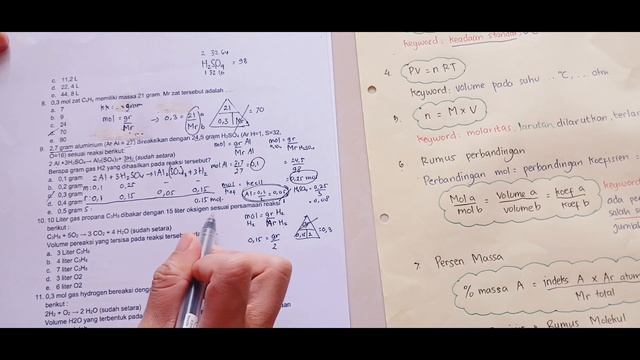 2 32 64
H₂SO₄ = 98
1 32 16
c. 11,2 L
d. 22,4 L
e. 44,8 L
8. 0,3 mol zat CₓHᵧ memiliki massa 21 gram. Mr zat tersebut adalah ....
a. 7
b. 9
c. 24
d. 70
e. 90
mol = gr/Mr → 0,3 = 21/Mr
21
0,3 Mr
= 70
9. 2,7 gram aluminium (Ar Al = 27) direaksikan dengan 24,5 gram H₂SO₄ (Ar H=1, S=32,
O=16) sesuai reaksi berikut:
2 Al +3H₂SO₄ → Al₂(SO₄)₃+ 3H₂ (sudah setara)
Berapa gram gas H2 yang dihasilkan pada reaksi tersebut?
a. 0,1 gram
b. 0,2 gram
c. 0,3 gram
d. 0,4 gram
e. 0,5 gram
2 Al + 3H₂SO₄ → 1 Al₂(SO₄)₃ + 3 H₂
m: 0,1 0,25
0,05 0,15
0,15 mol
mol = gr/Mr Al
mol Al = 2,7/27 = 0,1
mol = gr/Mr H₂SO₄
= 24,5/98
= 0,25 mol
mol = kecil
koef
Al = 0,1/2 = 0,05
H₂SO₄ = 0,25/3
= 0,08
mol H₂ = gr H₂/Mr H₂
0,15 = gr/2
gr
0,15 2
= 0,3
10. 10 Liter gas propana C₃H₈ dibakar dengan 15 liter oksigen sesuai persamaan reaksi
berikut :
C₃H₈ + 5O₂ → 3 CO₂ + 4 H₂O (sudah setara)
Volume pereaksi yang tersisa pada reaksi tersebut
a. 3 Liter C₃H₈
b. 4 liter C₃H₈
c. 7 liter C₃H₈
d. 3 liter O2
e. 6 liter O2
11. 0,3 mol gas hydrogen bereaksi dengan
berikut :
2H₂ + O₂ → 2 H₂O (sudah setara)
Volume H2O yang terbentuk pada
Keyword: keadaan standar
4. PV = n RT
Keyword: volume pada suhu ...°C, ... atm
5. n = M x V
Keyword: molaritas, larutan dilarutkan
6 Rumus perbandingan
Perbandingan mol = perbandingan koefisien
Mol a/mol b = Volume a/volume b = koef a/koef b
keyword
ada pe
7. Persen Massa
% massa A = indeks A x Ar atom/Mr total
Rumus Molekul